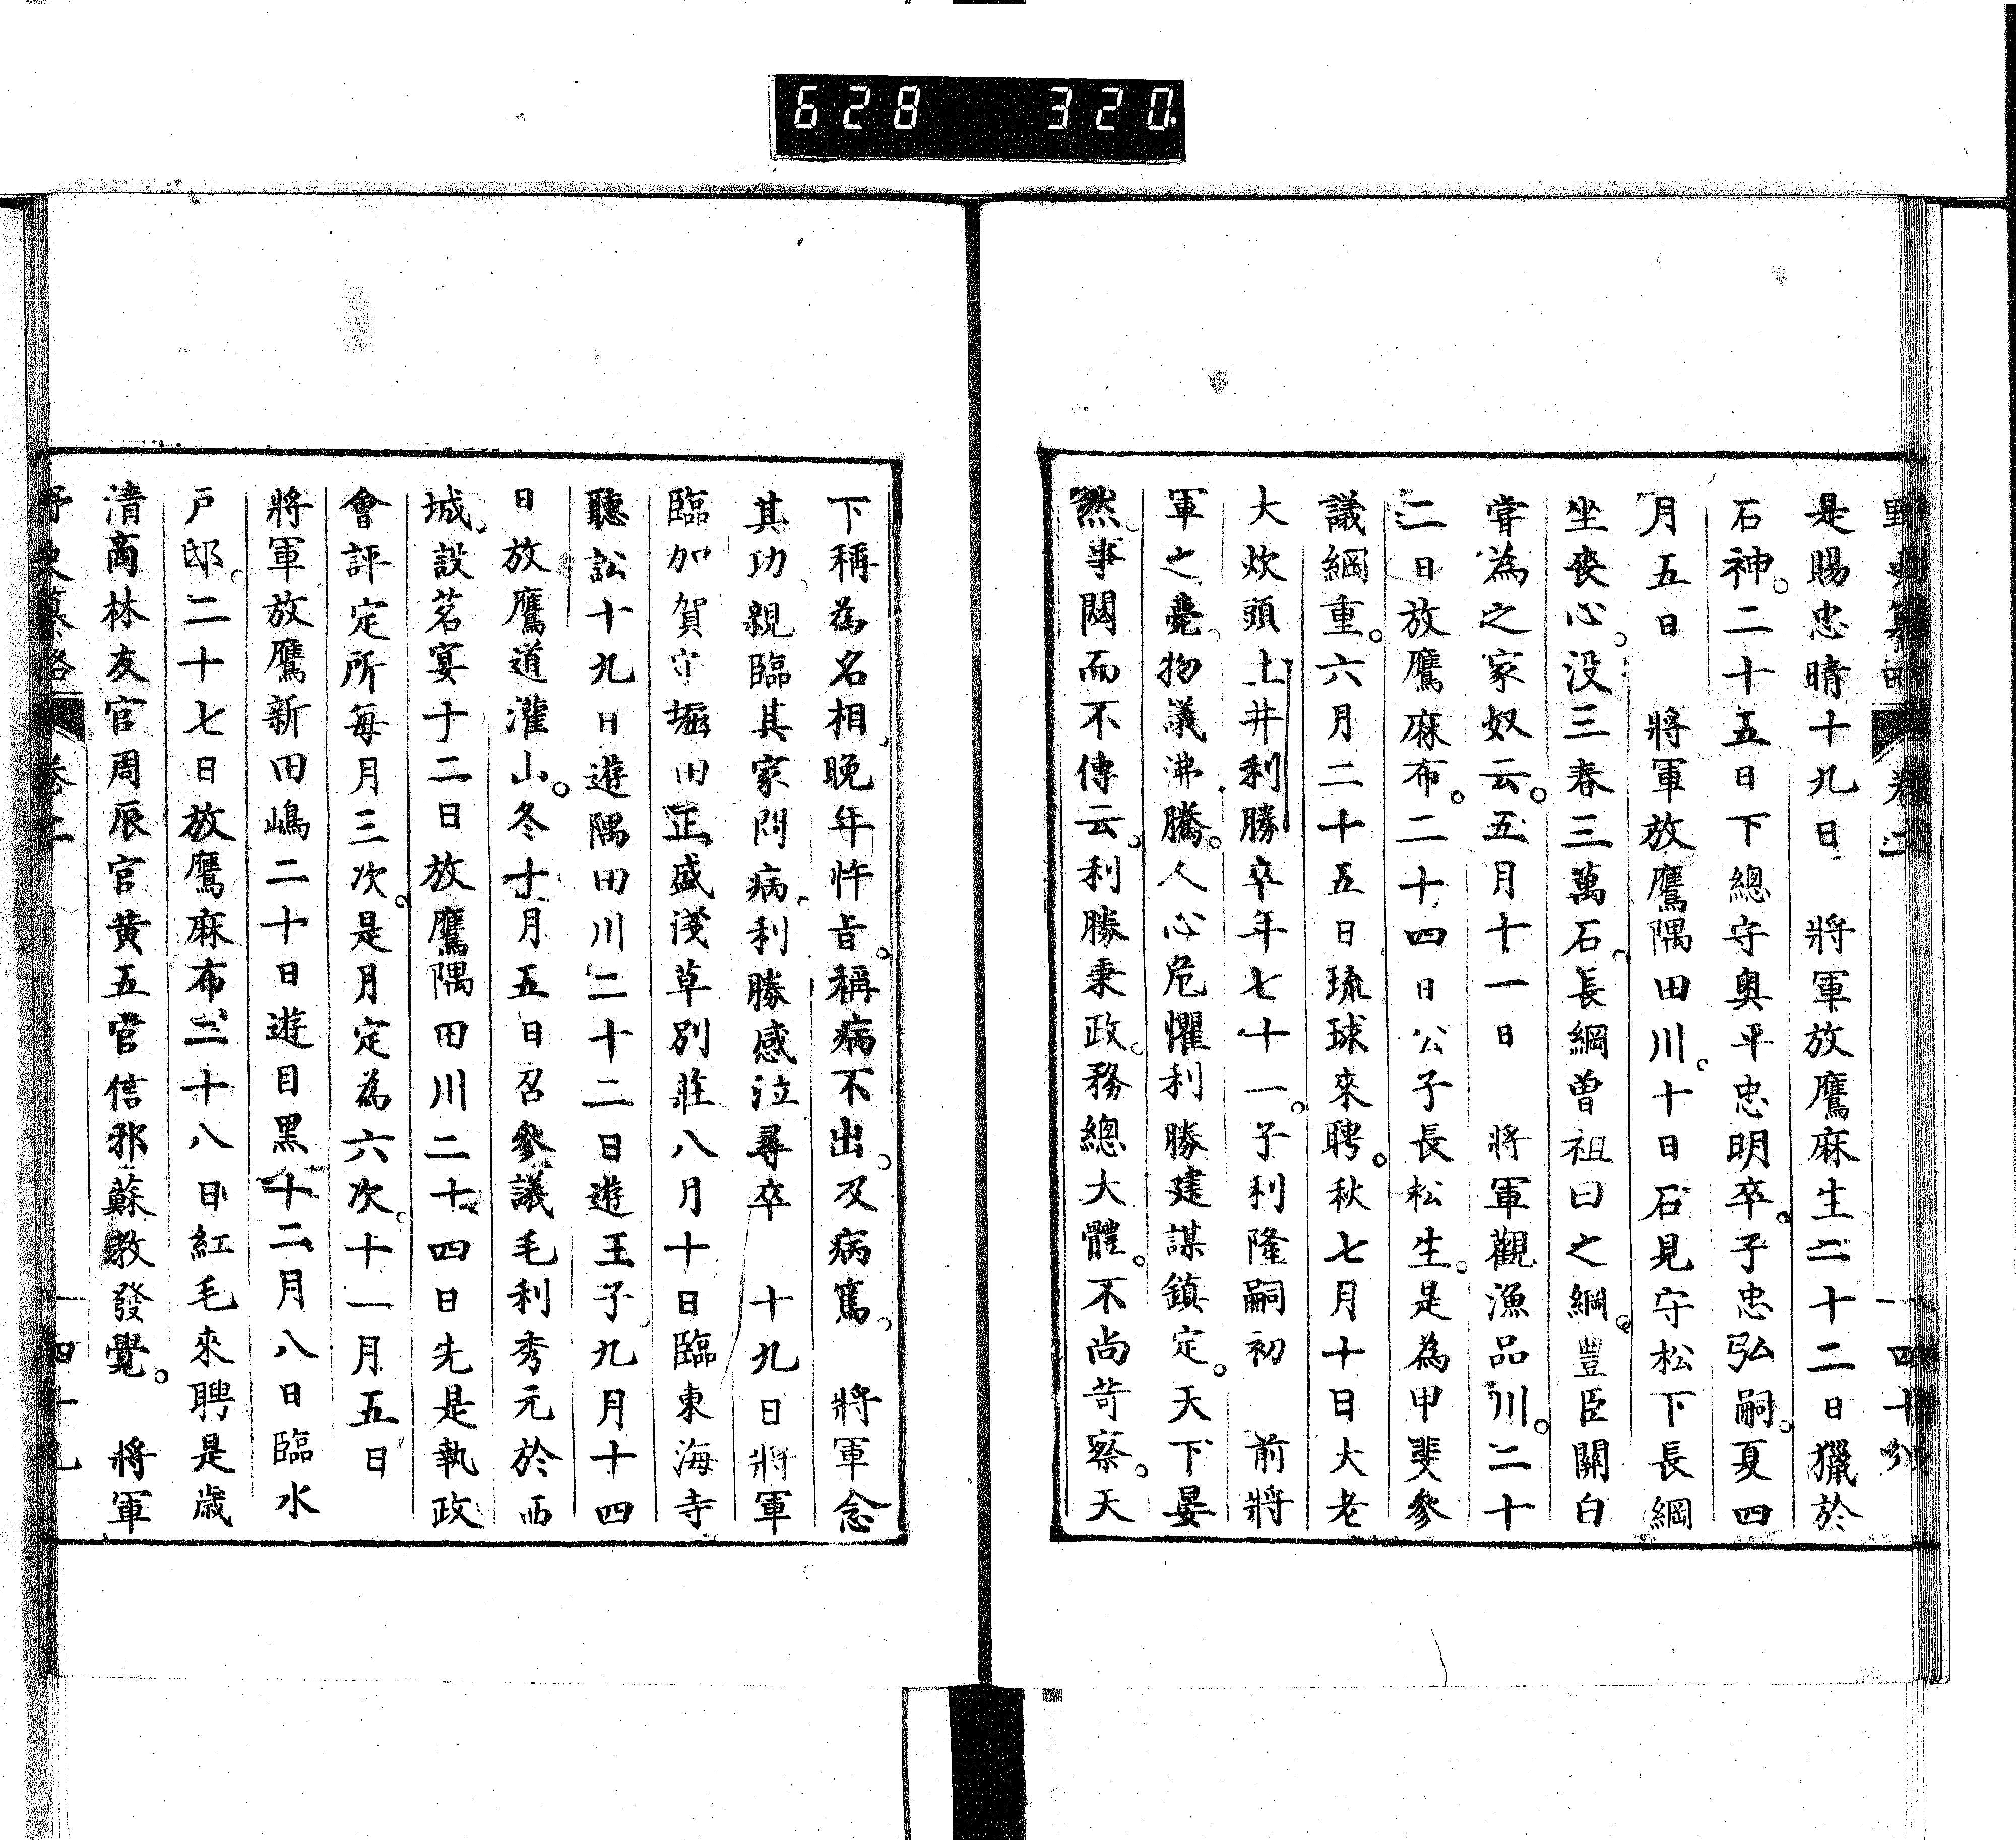 628 320
野史纂略 卷二 一四十八
是賜忠晴十九日 將軍放鷹麻生二十二日獵於
石神。二十五日下總守奥平忠明卒。子忠弘嗣。夏四
月五日 將軍放鷹隅田川。十日石見守松下長綱
坐喪心。没三春三萬石。長綱曾祖曰之綱。豐臣關白
甞為之家奴云。五月十一日 將軍觀漁品川。二十
二日放鷹麻布。二十四日公子長松生。是為甲斐參
議綱重。六月二十五日琉球來聘。秋七月十日大老
大炊頭土井利勝卒年七十一。子利隆嗣初 前將
軍之薨。物議沸騰。人心危懼利勝建謀鎮定。天下晏
然。事閟而不傳云。利勝秉政。務總大體。不尚苛察。天
下稱為名相。晩年忤旨。稱病不出。及病篤。 將軍念
其功。親臨其家問病。利勝感泣尋卒 十九日將軍
臨加賀守堀田正盛淺草別莊八月十日臨東海寺
聽訟十九日遊隅田川二十二日遊王子九月十四
日放鷹道灌山。冬十月五日召參議毛利秀元於西
城。設茗宴十二日放鷹隅田川二十四日先是執政
會評定所每月三次。是月定為六次。十一月五日
將軍放鷹新田嶋二十日遊目黑十二月八日臨水
戸邸。二十七日放鷹麻布。二十八日紅毛來聘是歲
清商林友官周辰官黄五官信邪蘇教發覺。 將軍
野史纂略 卷二 一四十九